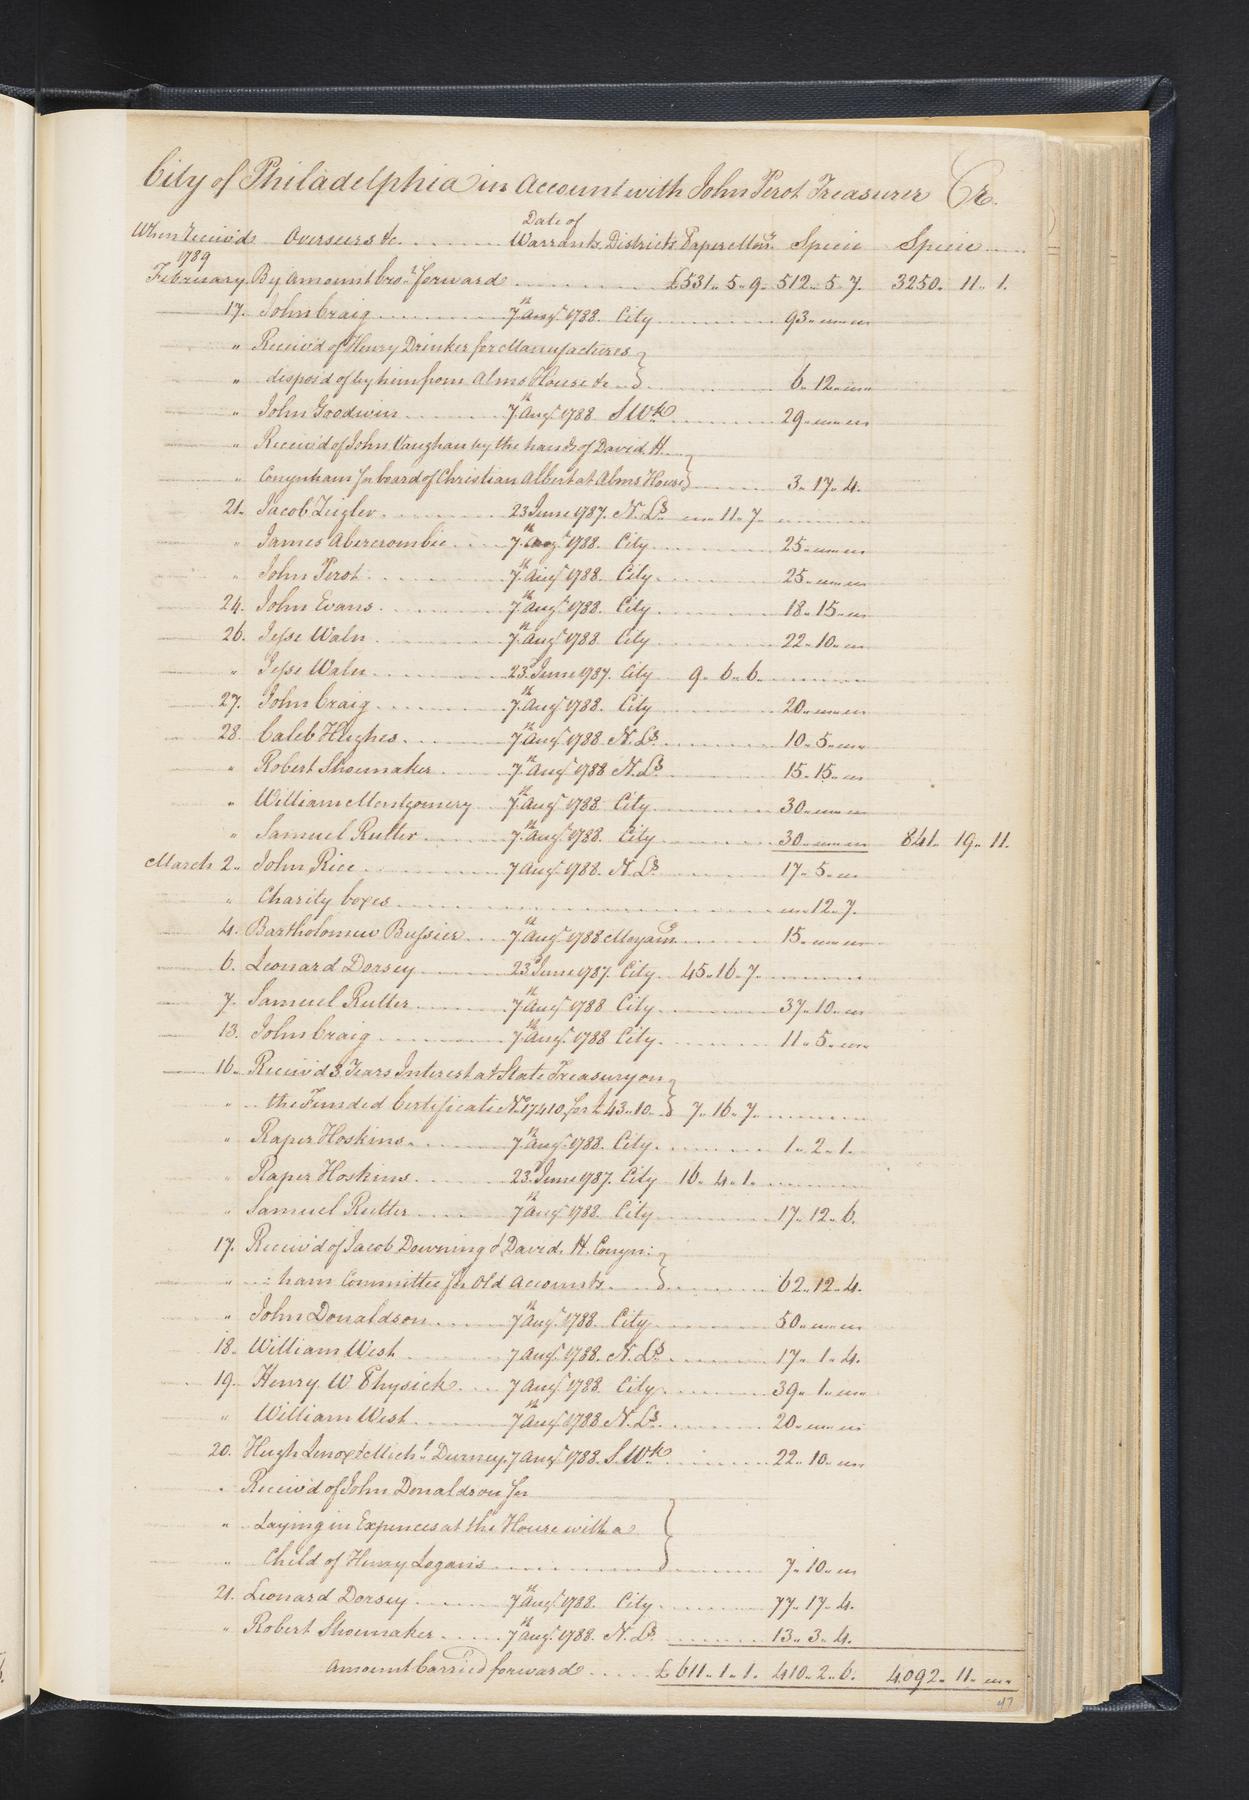 City of Philadelphia in Account with John Perot Treasurer Cr.
Date of
When Receiv'd Overseers &c. Warrants. Districts. Paper Mony. Specie Specie
1789
February. By Amount bro.t forward £531.. 5.. 9. 512.. 5.. 7. 3250. 11.. 1.
17. John Craig 7th Augt. 1788. City 93.. ..
" Receiv'd of Henry Drinker for Manufactures
" dispos'd of by him from Alms House &c. 6. 12. ..
" John Goodwin 7th Augt. 1788. S.Wk. 29.. ..
" Receiv'd of John Vaughan by the hands of David. H.
" Conynham for board of Christian Albert at Alms House 3.. 17.. 4.
21. Jacob Zeigler 23 June 1787. N. Ls. .. 11.. 7.
" James Abercrombie 7th Augt. 1788. City 25.. ..
" John Perot 7th Augt. 1788. City 25.. ..
24. John Evans 7th Augt. 1788. City 18.. 15.. ..
26. Jesse Waln 7th Augt. 1788. City 22.. 10.. ..
" Jesse Waln 23d. June 1787. City 9.. 6.. 6.
27. John Craig 7th Augt. 1788. City 20.. ..
28. Caleb Hughes 7th Augt. 1788. N. Ls. 10.. 5.. ..
" Robert Shoemaker 7th Augt. 1788 N. Ls. 15.. 15.. ..
" William Montgomery 7th Augt. 1788. City 30.. ..
" Samuel Rutter 7th Augt. 1788. City 30.. .. 841.. 19.. 11.
March 2.. John Rice 7 Augt. 1788. N. Ls. 17.. 5.. ..
" Charity boxes .. 12.. 7.
4. Bartholomew Bussier 7th Augt. 1788 Moyamg. 15.. ..
6. Leonard Dorsey 23d June 1787. City 45.. 16.. 7.
7. Samuel Rutter 7th Augt. 1788 City 37.. 10.. ..
13. John Craig 7th Augt. 1788 City 11.. 5.. ..
16. Receiv'd 3 Years Interest at State Treasury on
" the Funded Certificate No. 17410. for £43..10.. 7.. 16.. 7.
" Raper Hoskins 7th Augt. 1788. City 1.. 2.. 1.
" Raper Hoskins 23d June 1787. City 16.. 4.. 1.
" Samuel Rutter 7th Augt. 1788. City 17.. 12.. 6.
17. Receiv'd of Jacob Downing & David. H. Conyn:
" :ham Committee for Old Accounts 62.. 12.. 4.
" John Donaldson 7th Augt. 1788. City 50.. ..
18. William West 7 Augt. 1788. N. Ls. 17.. 1.. 4.
19. Henry. W Physick 7 Augt. 1788. City 39.. 1.. ..
" William West 7th Augt. 1788 N. Ls. 20.. ..
20. Hugh Lenox & Michl. Durney. 7 Augt. 1788. S. Wk. 22.. 10.. ..
" Receiv'd of John Donaldson for
" Laying in Expences at the House with a
" Child of Henry Logan's 7.. 10.. ..
21. Leonard Dorsey 7th Augt. 1788. City 77.. 17.. 4.
" Robert Shoemaker 7th Augt. 1788. N. Ls. 13.. 3.. 4.
Amount Carried forward £611.. 1.. 1. 410.. 2.. 6. 4092.. 11.. ..
47